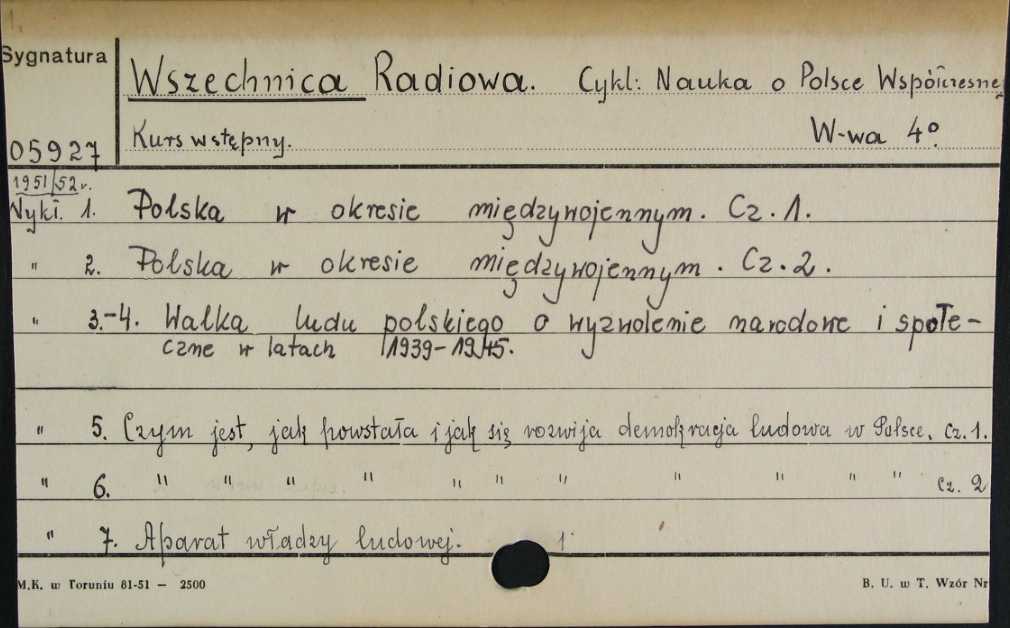 Sygnatura
Wszechnica Radiowa. Cykl: Nauka o Polsce Współczesnej
05927 Kurs wstępny. W-wa 4°
1951/52 r.
Wykł. 1. Polska w okresie międzywojennym. Cz. 1.
" 2. Polska w okresie międzywojennym. Cz. 2.
" 3.-4. Walka ludu polskiego o wyzwolenie narodowe i społe-
czne w latach 1939-1945.
" 5. Czym jest, jak powstała i jak się rozwija demokracja ludowa w Polsce. Cz. 1.
" 6. " " " " " " " " " " " Cz. 2
" 7. Aparat władzy ludowej. 1
M.K. w Toruniu 81-51 — 2500 B. U. w T. Wzór Nr